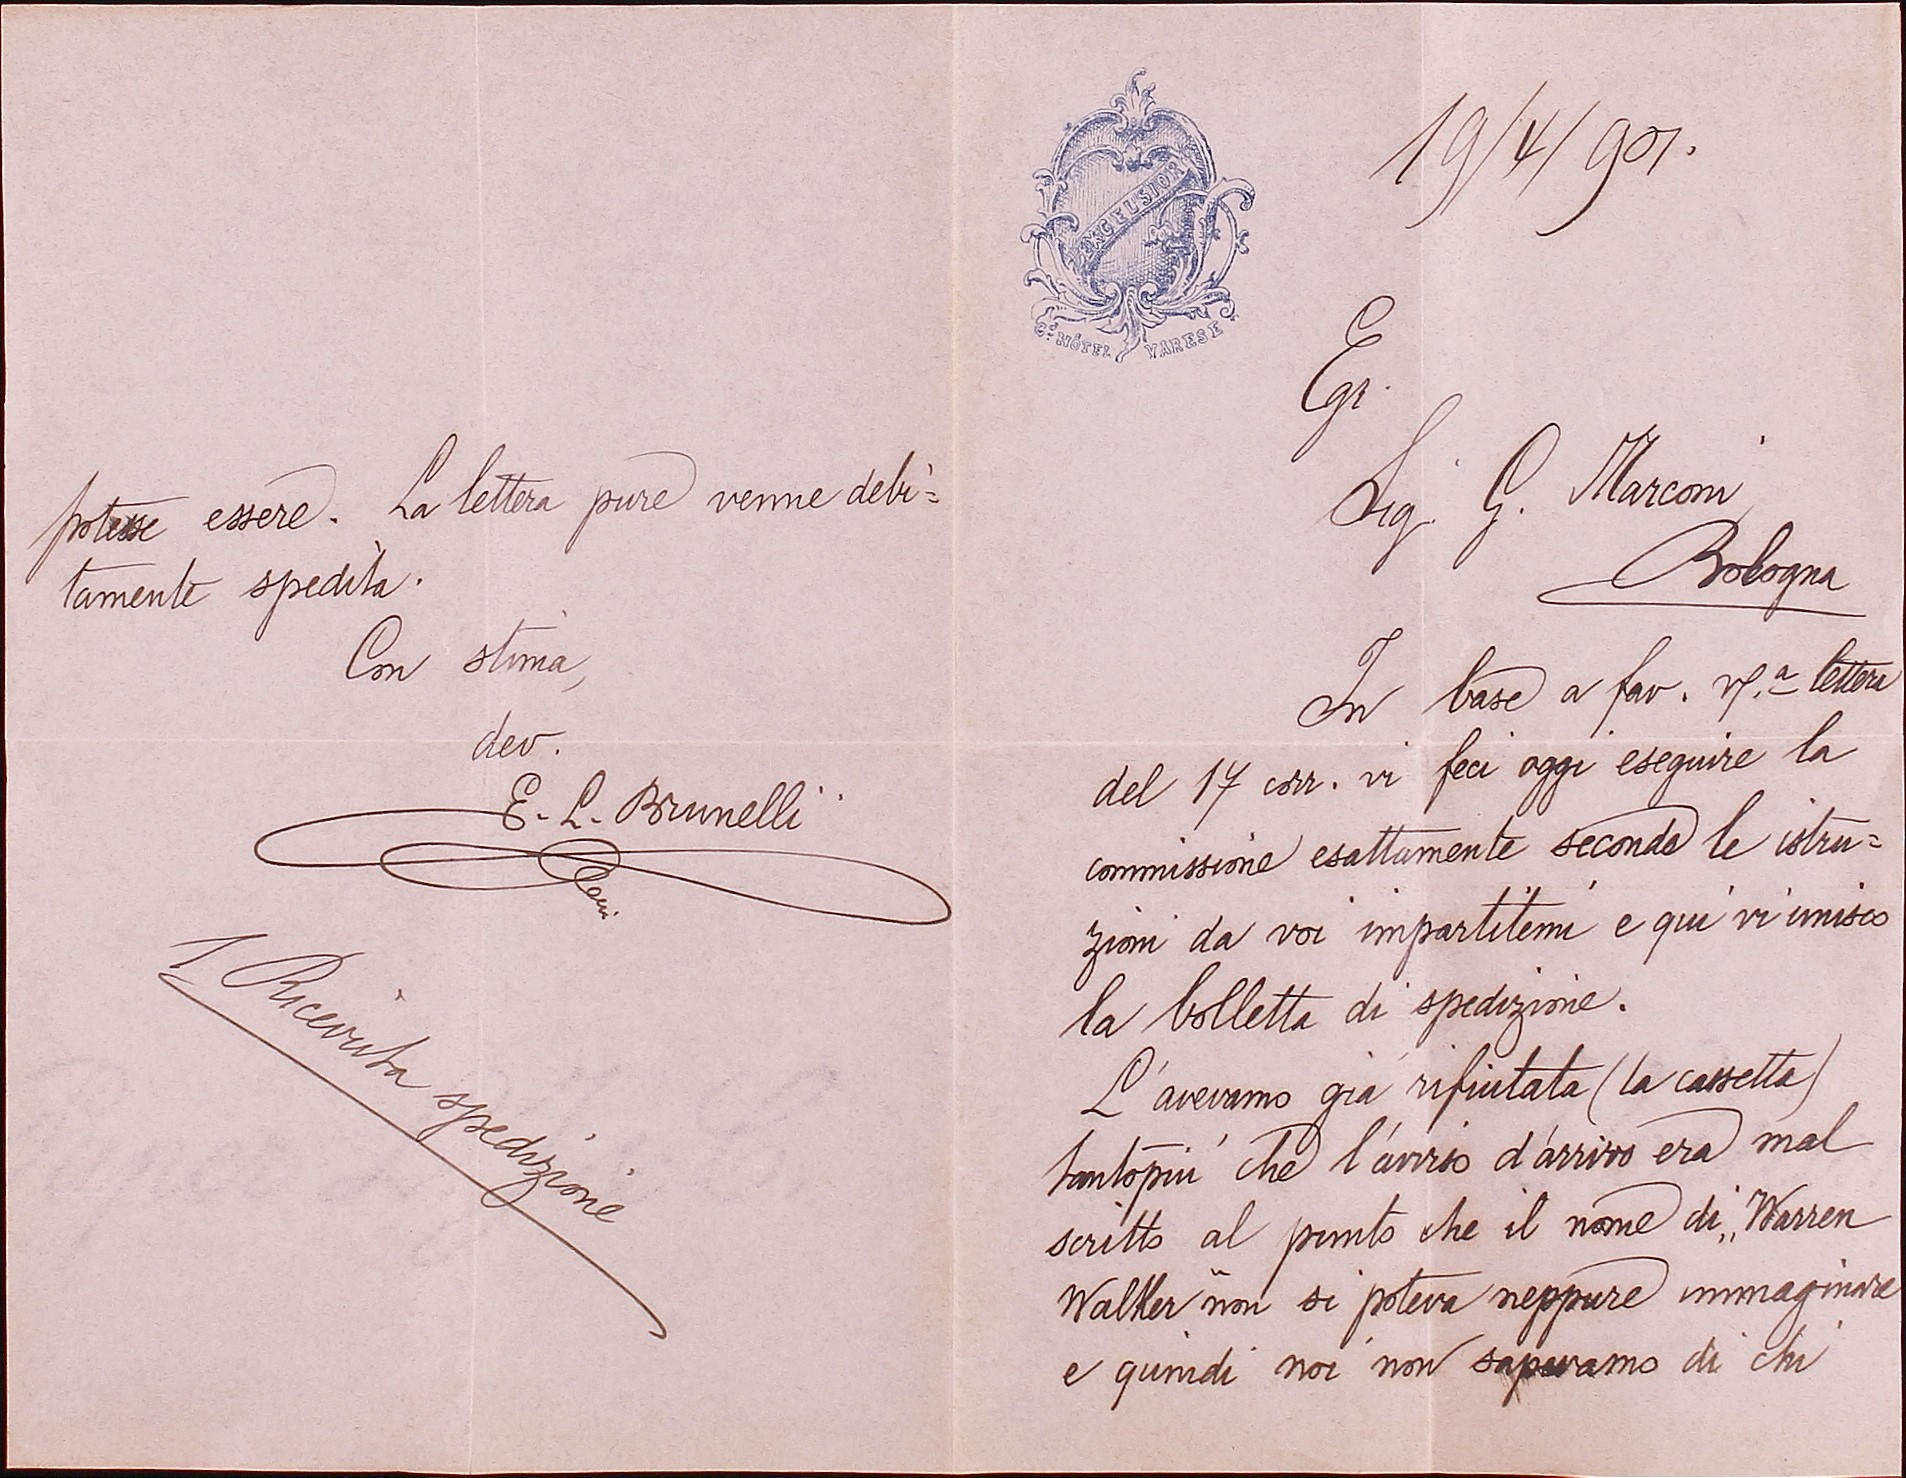 EXCELSIOR
Gd HÔTEL VARESE
19/4/901.
Egr.
Sig. G. Marconi
Bologna
In base a fav. vs.a lettera
del 17 corr. vi feci oggi eseguire la
commissione esattamente secondo le istru=
zioni da voi impartitemi e qui vi unisco
la bolletta di spedizione.
L'avevamo già rifiutata (la cassetta)
tantopiù che l'avviso d'arrivo era mal
scritto al punto che il nome di „Warren
Walker" non si poteva neppure immaginare
e quindi noi non sapevamo di chi
potesse essere. La lettera pure venne debi=
tamente spedita.
Con stima,
dev.
E. L. Brunelli
1 Ricevuta spedizione